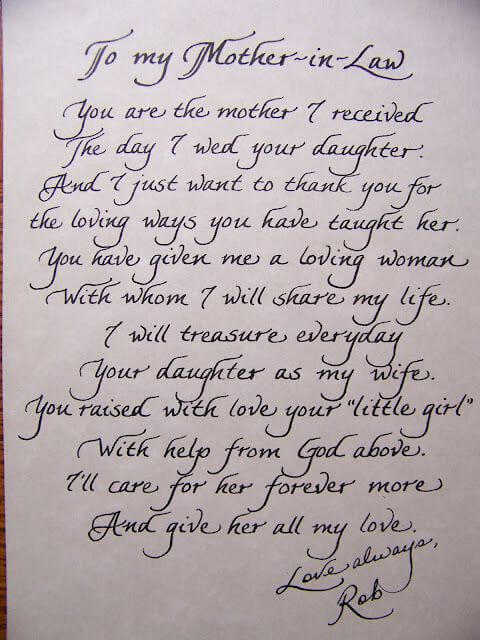 To my Mother-in-Law
You are the mother I received
The day I wed your daughter.
And I just want to thank you for
the loving ways you have taught her.
You have given me a loving woman
With whom I will share my life.
I will treasure everyday
Your daughter as my wife.
You raised with love your "little girl"
With help from God above.
I'll care for her forever more
And give her all my love.
Love always,
Rob